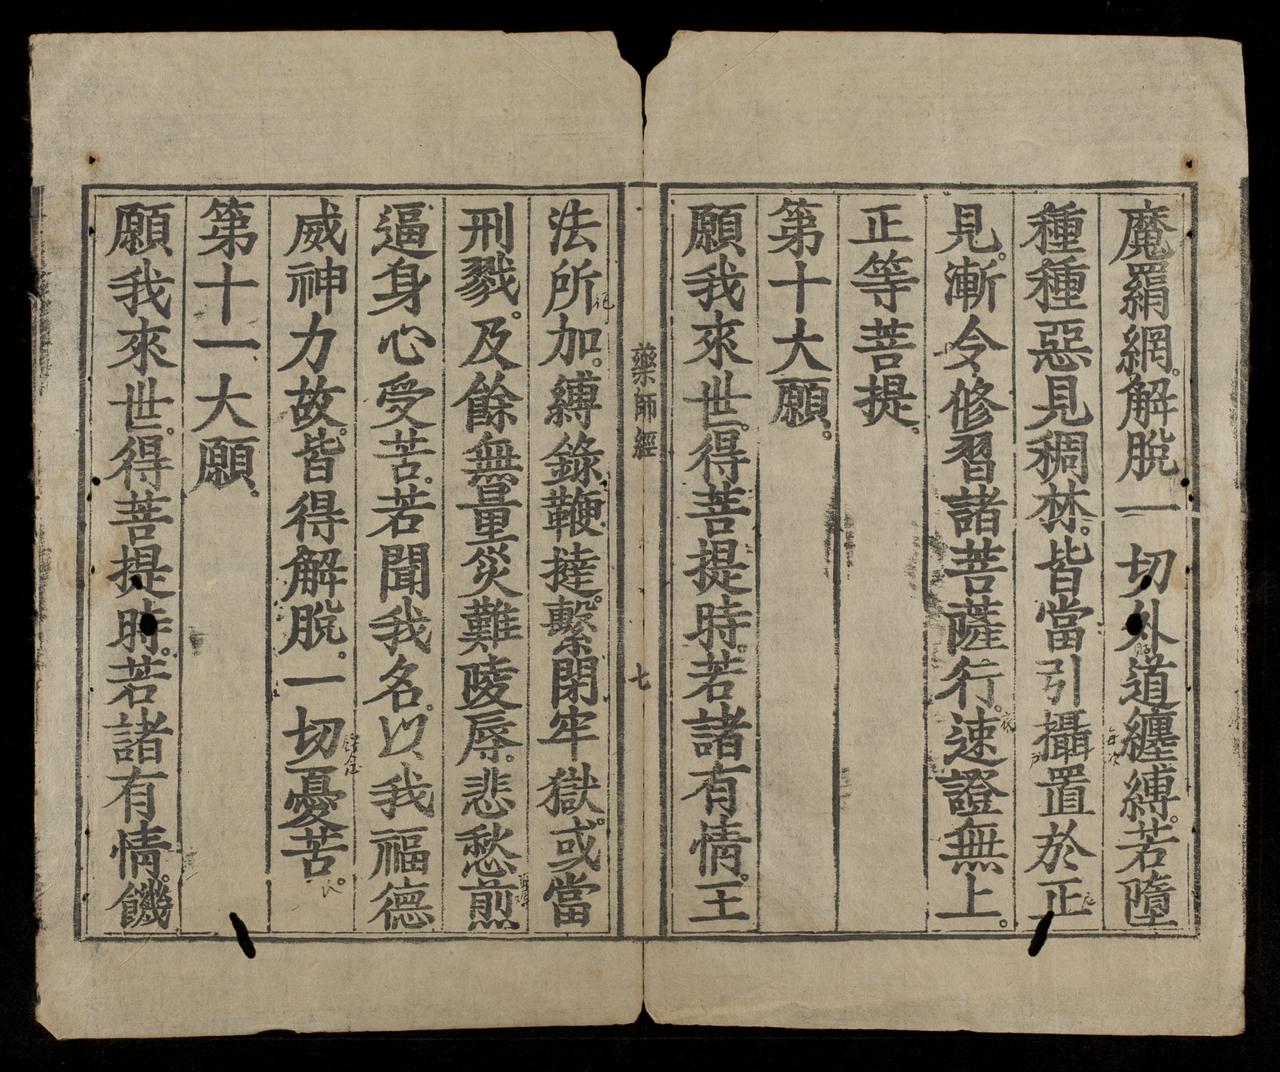 魔羂網。解脫一切外道纏縛。若墮
種種惡見稠林。皆當引攝置於正
見。漸令修習諸菩薩行。速證無上。
正等菩提。
第十大願。
願我來世。得菩提時。若諸有情。王
藥師經
七
法所加。縛錄鞭撻。繫閉牢獄。或當
刑戮。及餘無量災難陵辱。悲愁煎
逼身心受苦。若聞我名。以我福德
威神力故。皆得解脫。一切憂苦。
第十一大願。
願我來世。得菩提時。若諸有情。饑